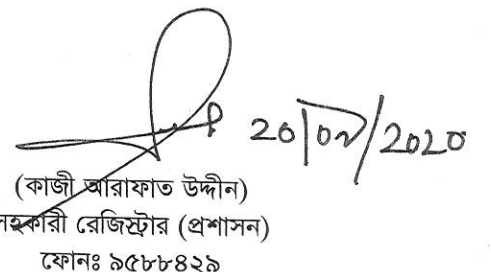 20/০৯/2020
(কাজী আরাফাত উদ্দীন)
সহকারী রেজিস্ট্রার (প্রশাসন)
ফোনঃ ৯৫৮৮৪২৯